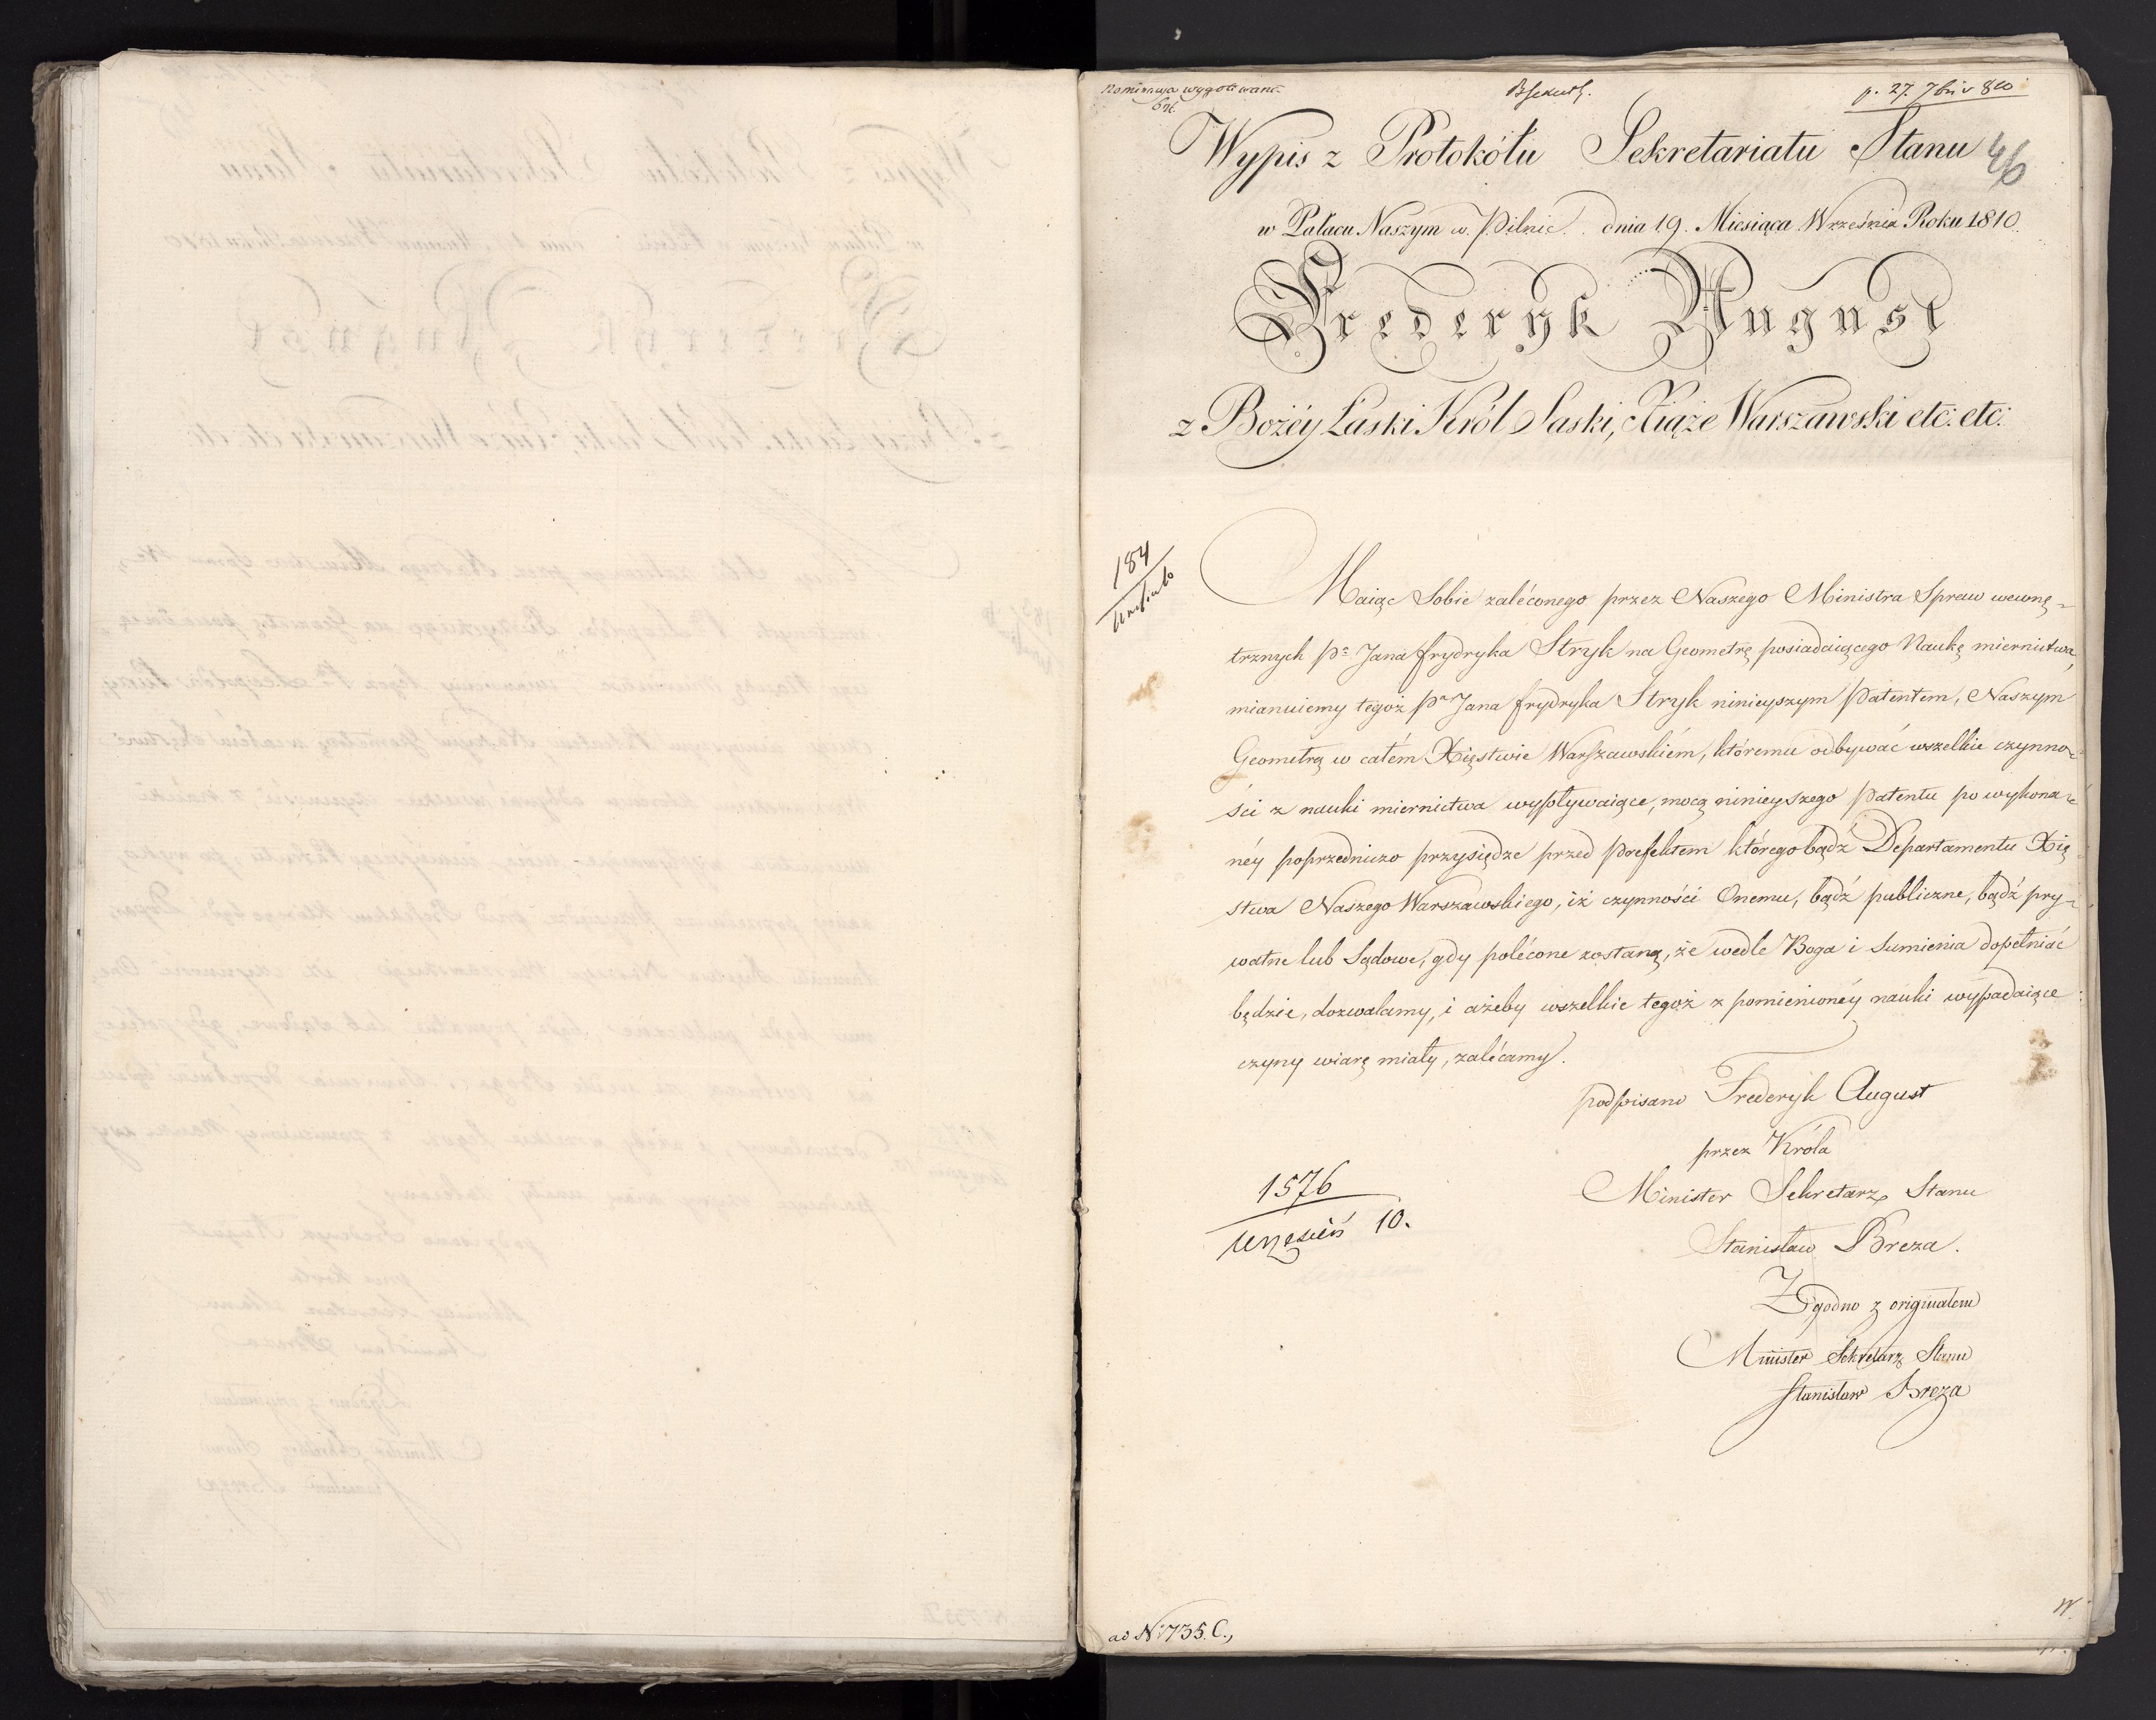 Nominacya wygotowana
p. 27. 7bris 810
Wypis z Protokółu Sekretariatu Stanu
46
w Pałacu Naszym w. Pilnic. dnia 19. Miesiąca Września Roku 1810.
Frederyk August
z Bożéy Łaski Król Saski, Xiąże Warszawski etc: etc:
184
Maiąc Sobie zaléconego przez Naszego Ministra Spraw wewnę-
trznych Pa Jana frydryka Stryk na Geometrę posiadaiącego Naukę miernictwa,
mianuiemy tegoż Pa Jana frydryka Stryk ninieyszym Patentem, Naszym
Geometrą w całém Xięstwie Warszawskiém, któremu odbywać wszelkie czynno-
ści z nauki miernictwa wypływaiące, mocą ninieyszego Patentu po wykona-
néy poprzedniczo przysiędze przed Prefektem któregobądź Departamentu Xię-
stwa Naszego Warszawskiego, iż czynności Onemu, bądź publiczne, bądź pry-
watne lub Sądowe, gdy polécone zostaną, że wedle Boga i Sumienia dopełniać
będzie, dozwalamy, i ażeby wszelkie tegoż z pomienionéy nauki wypadaiące
czyny wiarę miały, zalécamy.
podpisano Frederyk August
przez Króla
Minister Sekretarz Stanu
Stanisław Breza.
1576
Wrzesień 10.
Zgodno z originałem
Minister Sekretarz Stanu
Stanisław Breza
ad N. 1735. C.,